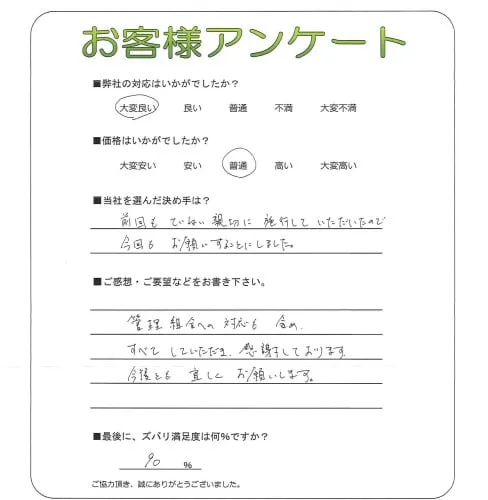 お客様アンケート
■弊社の対応はいかがでしたか?
大変良い 良い 普通 不満 大変不満
■価格はいかがでしたか?
大変安い 安い 普通 高い 大変高い
■当社を選んだ決め手は?
前回も ていねい親切に 施行して いただいたので
今回も お願いすることにしました。
■ご感想・ご要望などをお書き下さい。
管理組合への対応も 含め、
すべて していただき、感謝しております。
今後とも 宜しく お願いします。
■最後に、ズバリ満足度は何%ですか?
90 %
ご協力頂き、誠にありがとうございました。